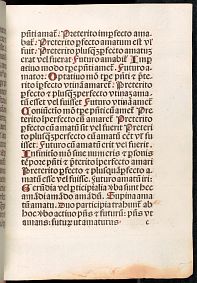 pn̄ti amaret̄. Preterito impfecto ama
bat̄. Preterito p̱fecto amatum est vł
fuit. Preterito plusq̄p̱fecto amatuȝ
erat vel fuerat Futuro amabit̄ Imp̱
atiuo modo tp̱e pn̄ti amet̄. Futuro a
mator. Optatiuo mō tp̱e pn̄ti ⁊ p̱te
rito ip̄fecto vtinā amaret̄. Preterito
p̱fecto ⁊ plusq̄p̱fecto vtinaȝ amatū
esset vel fuisset Futuro vtinā amet̄
Coniūctiō mō tp̱e pn̄ti cū amet̄ Pre
terito ip̄erfecto cū amaret̄ Preterito
p̱fecto cū amatū sit vl̄ fuerit Preteri
to plusq̄p̱fecto cū amatū eēt vl̄ fu
isset. Futuro cū amatū erit vel fuerit.
Infinitiō mō sine numeris ⁊ p̱sonis
tp̱e pn̄ti ⁊ p̱terito ip̄erfecto amari
Preterito p̱fecto ⁊ plusq̄p̱fecto ama
tum esse vel fuisse. Futuro amatū iri
Gerūdia vel p̱ticipialia v̄ba sunt hec
amādi amādo amādū. Supina ama
tū amatu. Duo participia trahunt̄ ab
hoc v̄bo actiuo pn̄s ⁊ futurū: pn̄s vt
amans: futuȝ vt amaturus
c